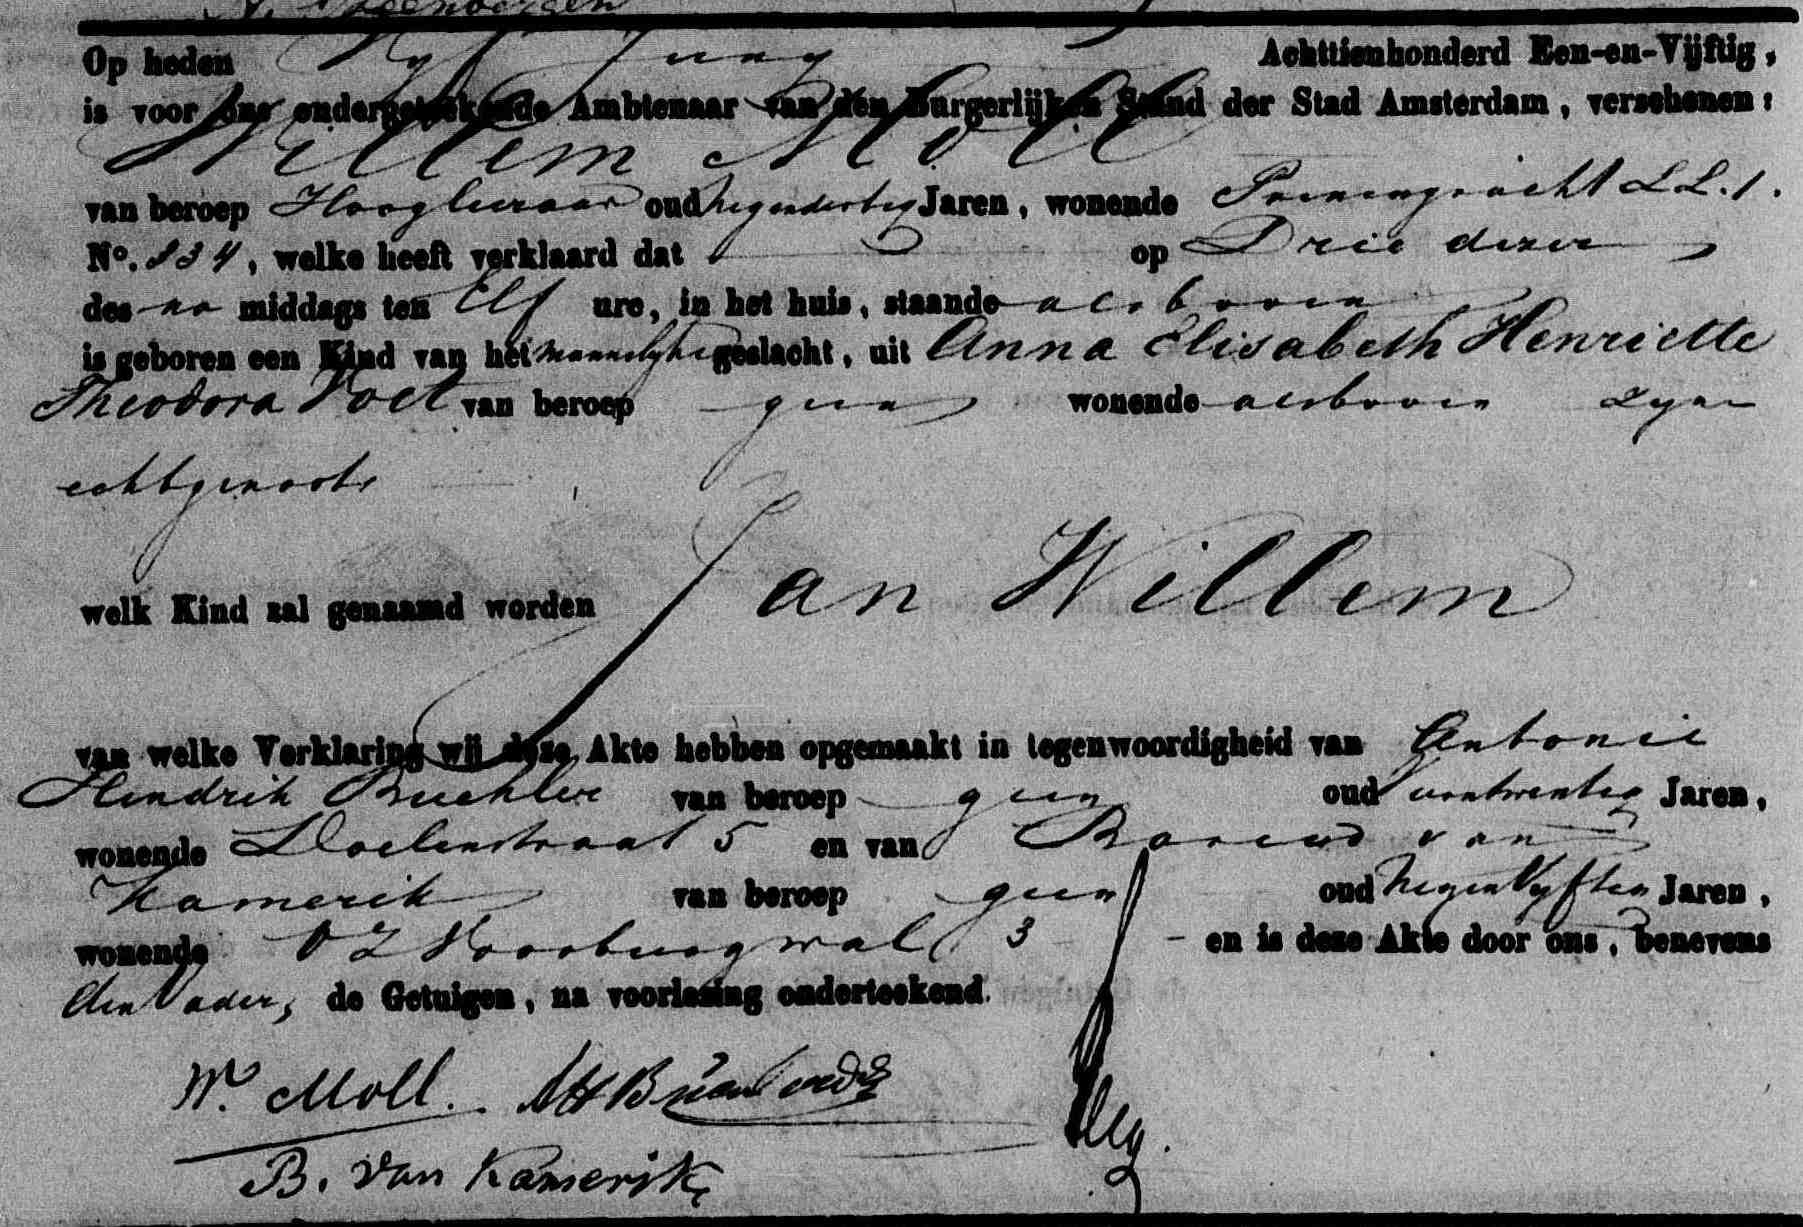 Op heden Vyf Juny Achttienhonderd Een-en-Vijftig,
is voor ons ondergeteekende Ambtenaar van den Burgerlijken Stand der Stad Amsterdam, verschenen:
Willem Moll
van beroep Hoogleeraar oud negendertig Jaren, wonende Prinsengracht LL. 1.
No. 834, welke heeft verklaard dat op Drie dezer
des na middags ten Elf ure, in het huis, staande alsboven
is geboren een Kind van het mannelyke geslacht, uit Anna Elisabeth Henriette
Theodora Voet van beroep geen wonende alsboven zyne
echtgenoote
welk Kind zal genaamd worden Jan Willem
van welke Verklaring wij deze Akte hebben opgemaakt in tegenwoordigheid van Antonie
Hendrik van beroep geen oud Jaren,
wonende Doelenstraat 5 en van Barend van
Kamerik van beroep geen oud negenVyftig Jaren,
wonende OZ Voorburgwal 3 en is deze Akte door ons, benevens
den Vader, de Getuigen, na voorlezing onderteekend.
W. Moll.
B. van Kamerik